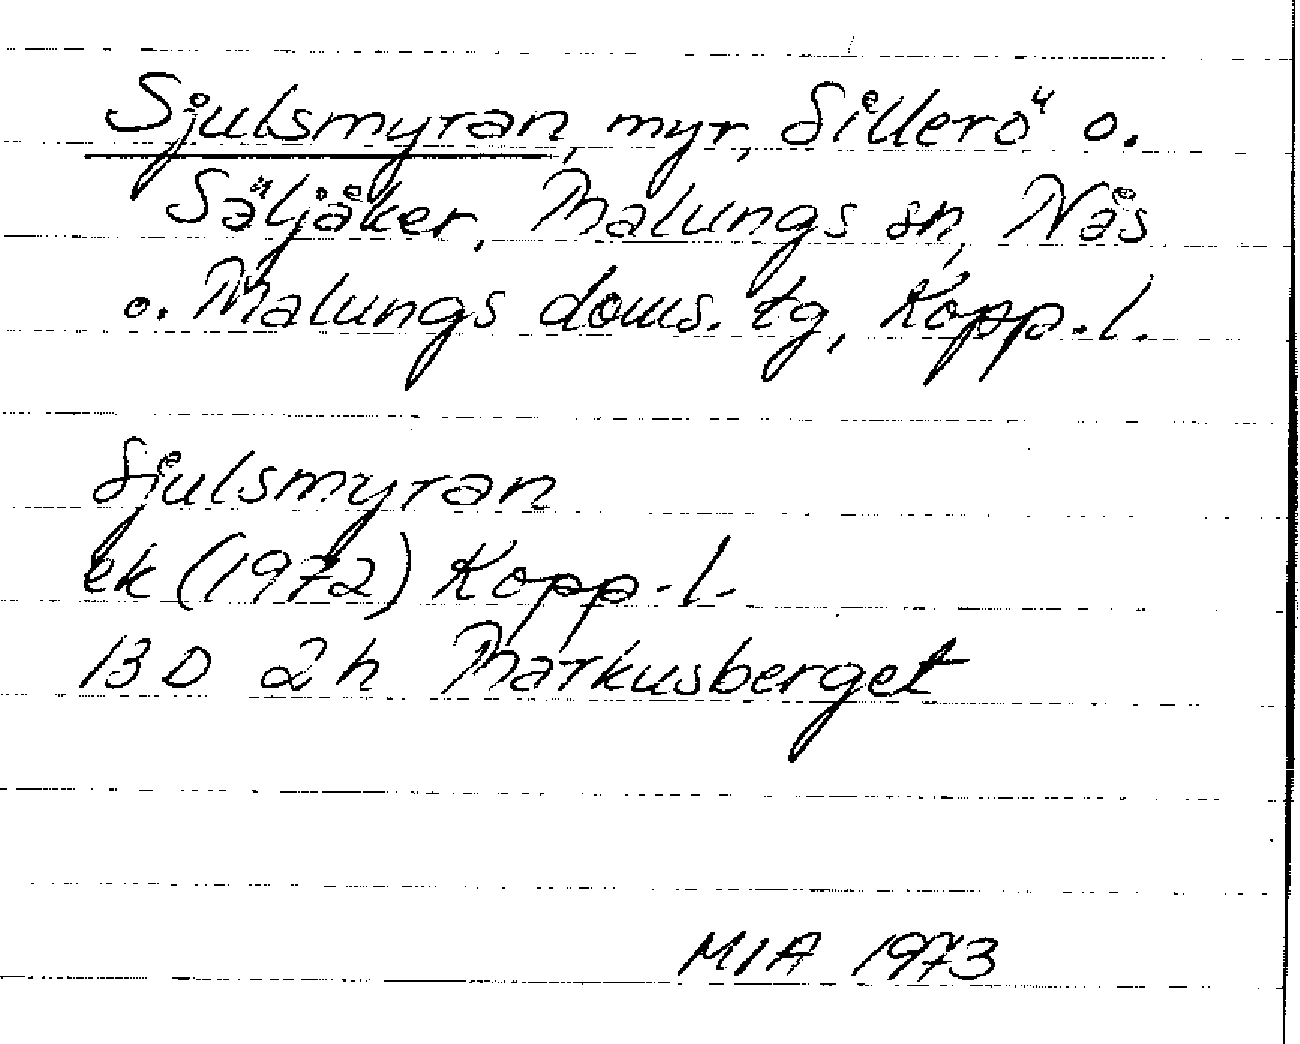 Sjulsmyran, myr, Sillerö o.
Säljåker, Malungs sn, Nås
o. Malungs doms. tg, Kopp. l.
Sjulsmyran
ek (1972) Kopp. l.
13 D 2 h Markusberget
MIA 1973